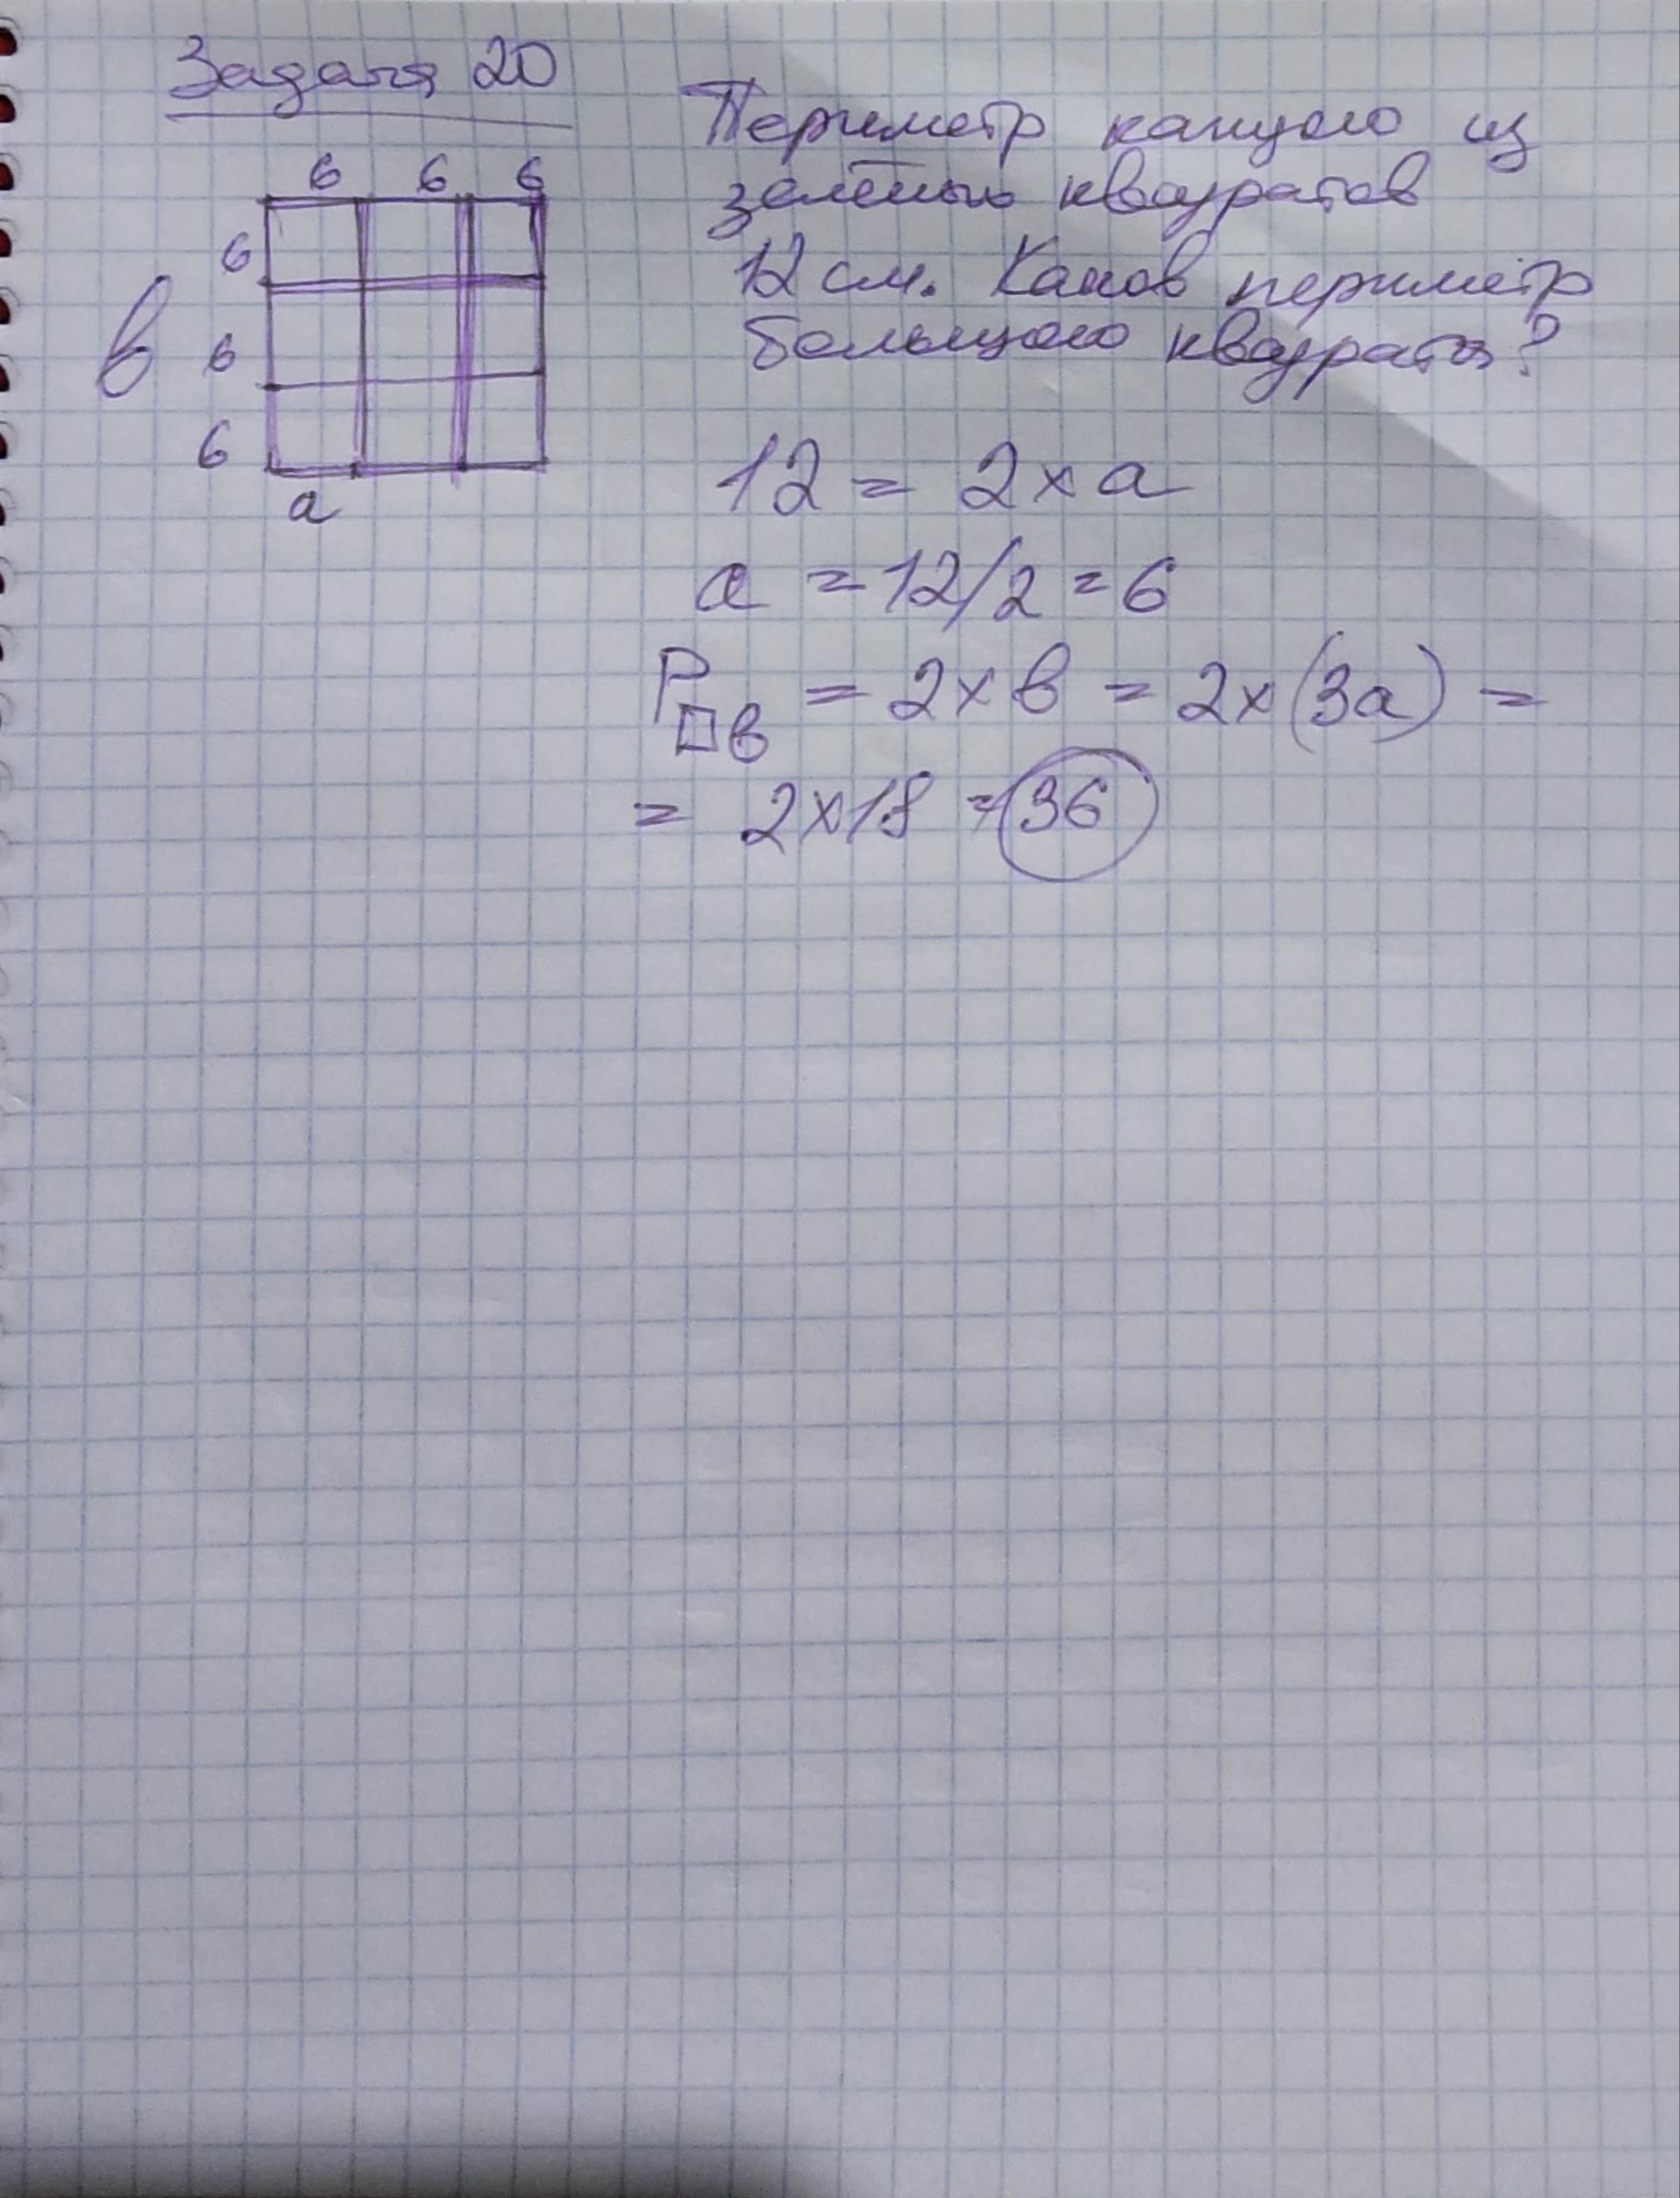 Задача 20
Периметр каждого из
зелёных квадратов
12 см. Каков периметр
большого квадрата?
6 6 6
6
в 6
6
а
12 = 2 × а
а = 12/2 = 6
P□в = 2 × в = 2 × (3а) =
= 2 × 18 = 36